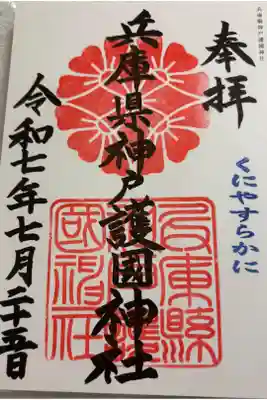 兵庫縣神戸護國神社
奉拝
くにやすらかに
兵庫県神戸護國神社
令和七年七月二十五日